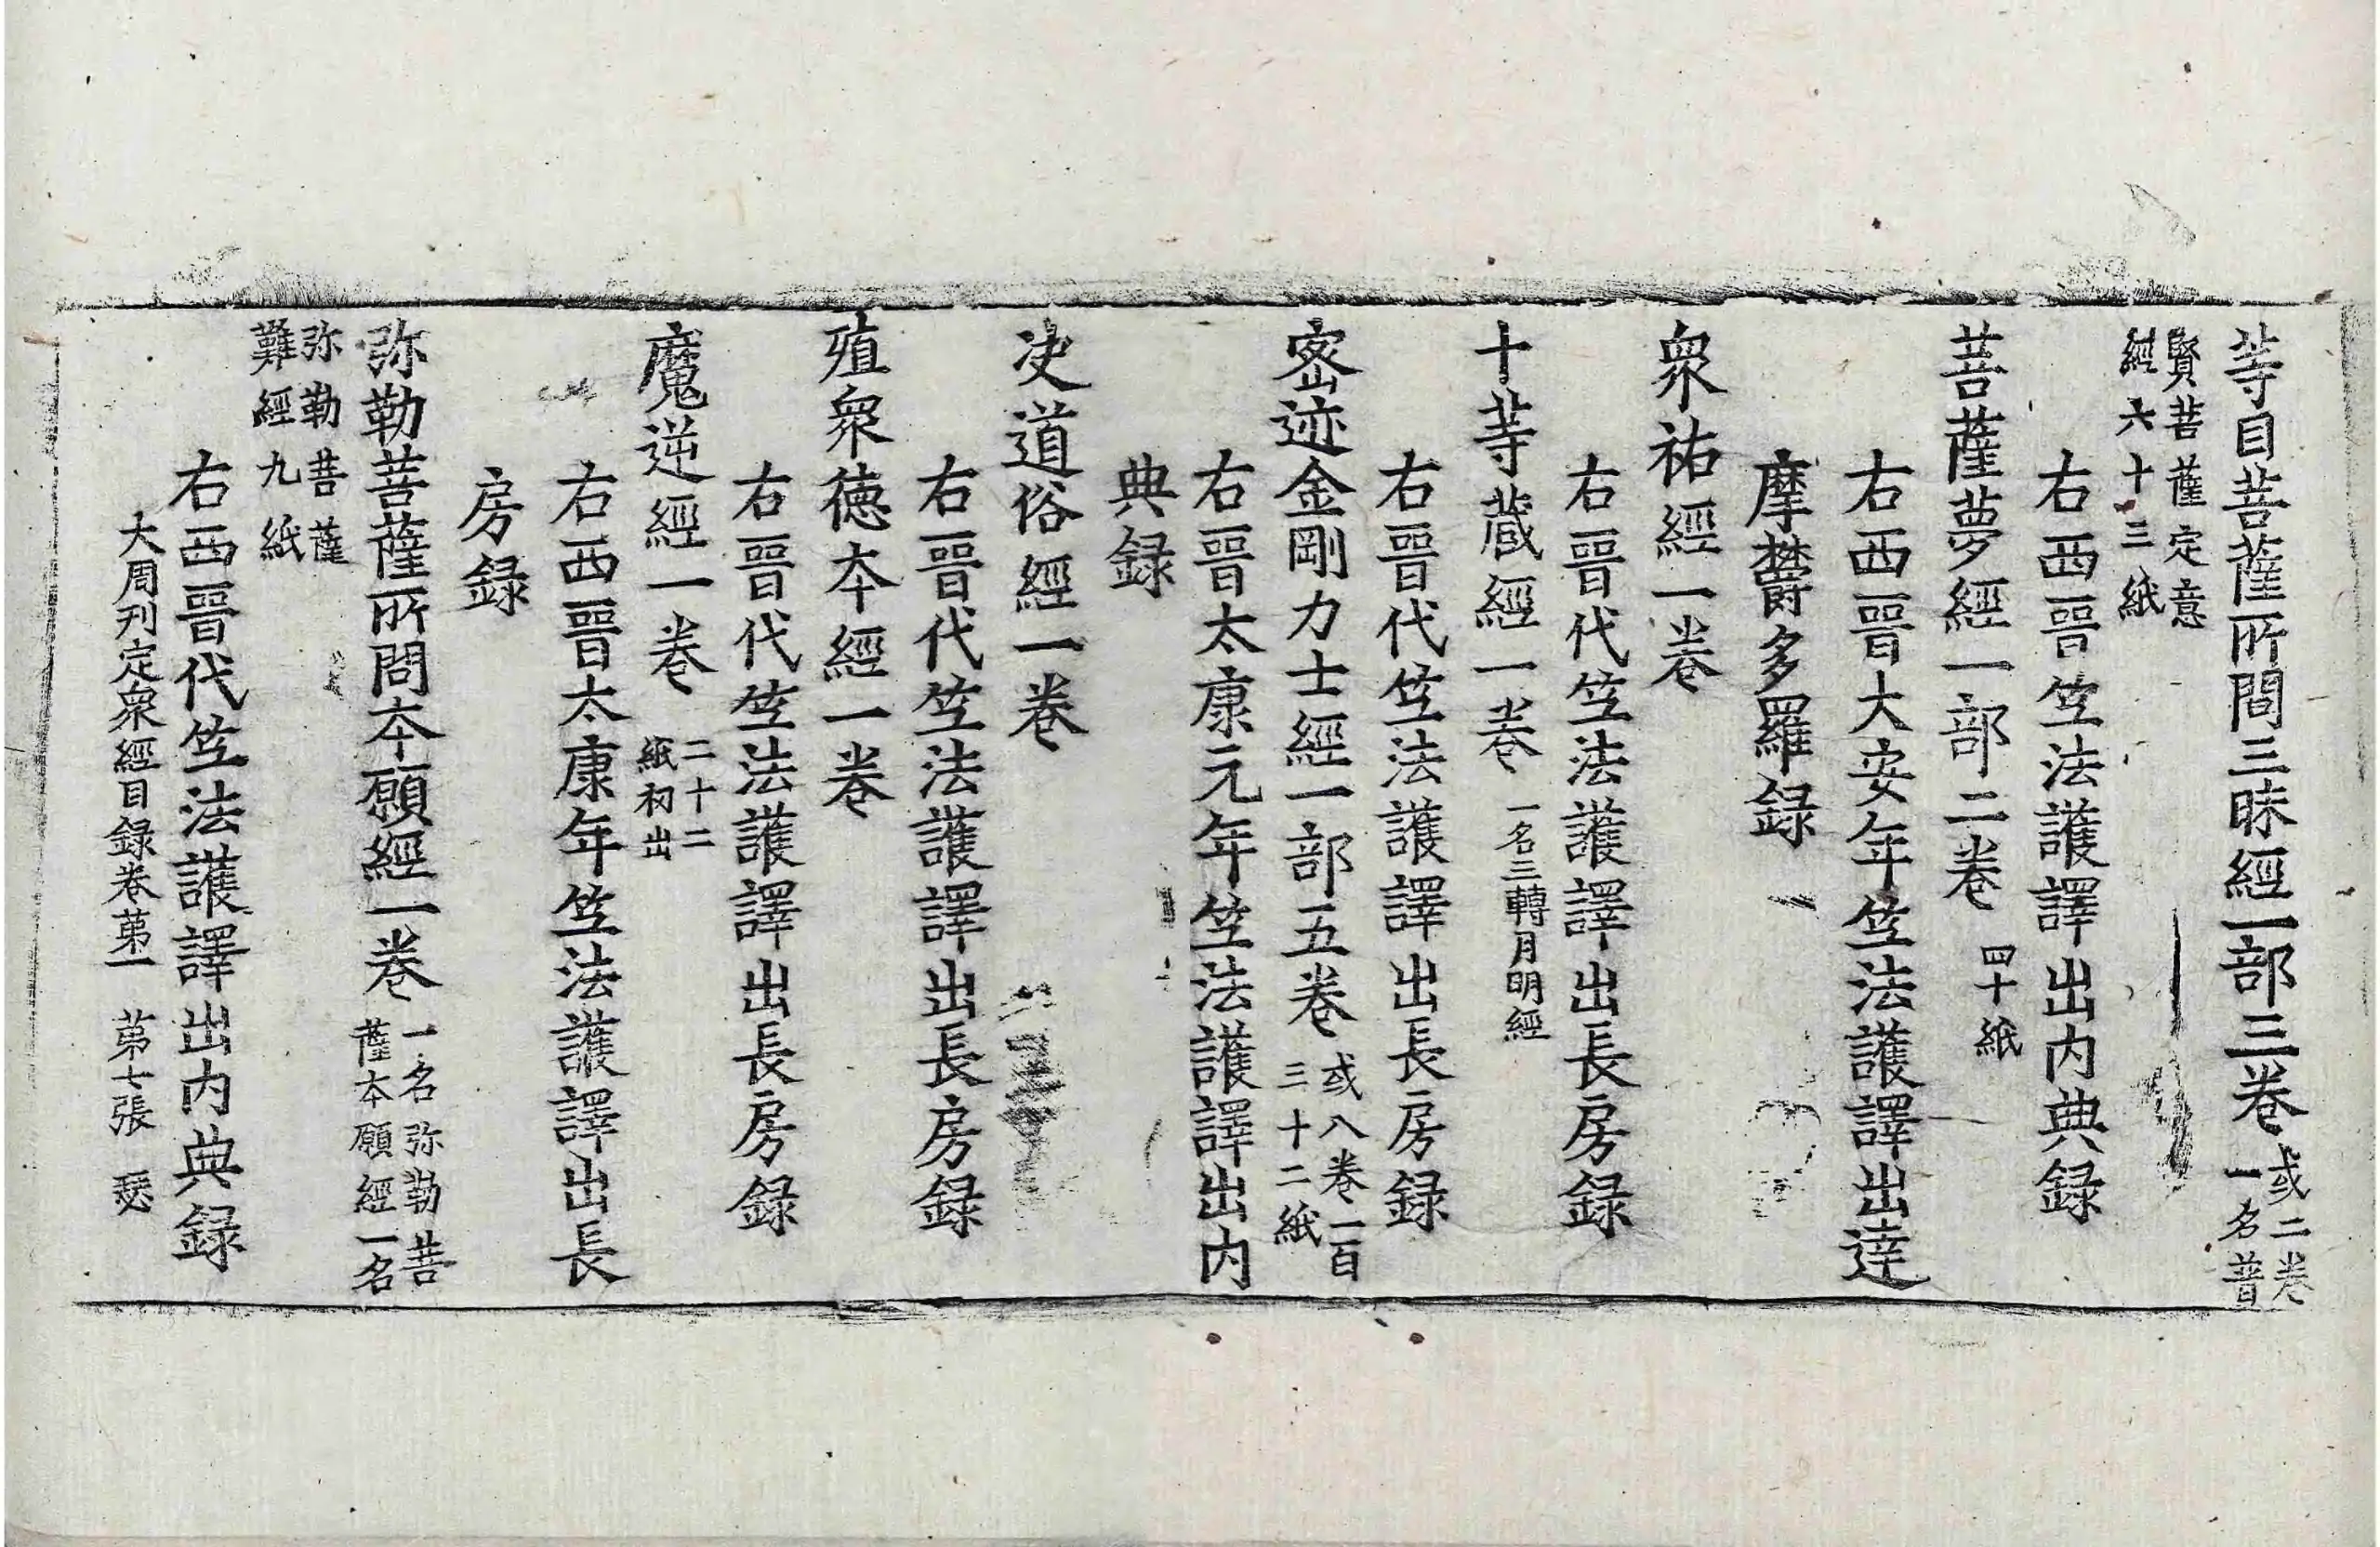 等目菩薩所問三昧經一部三卷 或二卷一名普
賢菩薩定意經六十三紙
右西晉竺法護譯出内典録
菩薩夢經一部二卷 四十紙
右西晉大安年竺法護譯出達
摩欝多羅録
衆祐經一卷
右晉代竺法護譯出長房録
十等藏經一卷 一名三轉月明經
右晉代竺法護譯出長房録
密迹金剛力士經一部五卷 或八卷一百三十二紙
右晉太康元年竺法護譯出内
典録
决道俗經一卷
右晉代竺法護譯出長房録
殖衆德本經一卷
右晉代竺法護譯出長房録
魔逆經一卷 二十二紙初出
右西晉太康年竺法護譯出長
房録
弥勒菩薩所問本願經一卷 一名弥勒菩薩本願經一名
弥勒菩薩難經九紙
右西晉代竺法護譯出内典録
大周刋定衆經目録卷第一 第七張 瑟